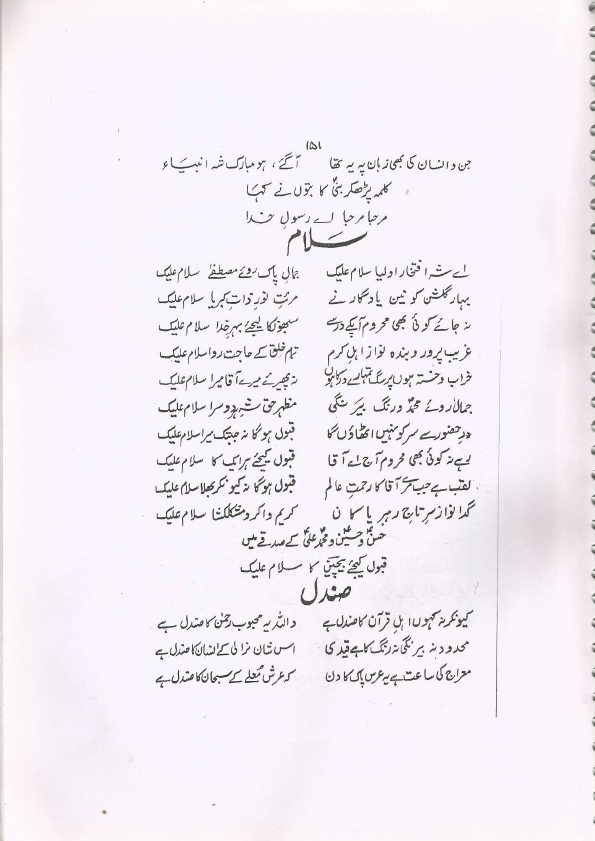 ۱۵۱
جن و انسان کی بھی زبان پہ یہ تھا آگئے ، ہو مبارک شہ انبیاء
کلمہ پڑھکر نبیؐ کا بتوں نے کہا
مرحبا مرحبا اے رسولِ خدا
سلام
اے شہ افتخار اولیا سلام علیک جمالِ پاک روئے مصطفےٰ سلام علیک
بہار گلشن کونین یادگار نے مرتبِ نورِ ذاتِ کبریا سلام علیک
نہ جائے کوئی بھی محروم آپکے در سے سبھوں کا لیجے بہر خدا سلام علیک
غریب پرور و بندہ نواز اہلِ کرم تمام خلق کے حاجت روا سلام علیک
خراب و خستہ ہوں پر سگ تمہارے در کا ہوں نہ پھیرئے میرے آقا میرا سلام علیک
جمال روئے محمدؐ و رنگ بیرنگی مظہر حق شہ دوسرا سلام علیک
درِ حضور سے سر کو نہیں اٹھاؤں گا قبول ہوگا نہ جبتک میرا سلام علیک
رہے نہ کوئی بھی محروم آج اے آقا قبول کیجئے ہر ایک کا سلام علیک
لقب ہے جب مرے آقا کا رحمتِ عالم قبول ہوگا نہ کیونکر بھلا سلام علیک
گدا نواز سرتاج رہبر پاکان کریم و اکرم و مشکلکشا سلام علیک
حسنؑ و حسینؑ و محمدؐ علیؑ کے صدقے میں
قبول کیجے بیچین کا سلام علیک
صندل
کیونکر نہ کہوں اہلِ قرآن کا صندل ہے واللہ یہ محبوبِ رحمٰن کا صندل ہے
محدود نہ بیرنگی نہ رنگ کا ہے قیدی اس شان نرالی کے انسان کا صندل ہے
معراج کی ساعت ہے یہ عرسِ پاک کا دن کہ عرشِ معلےٰ کے سبحان کا صندل ہے